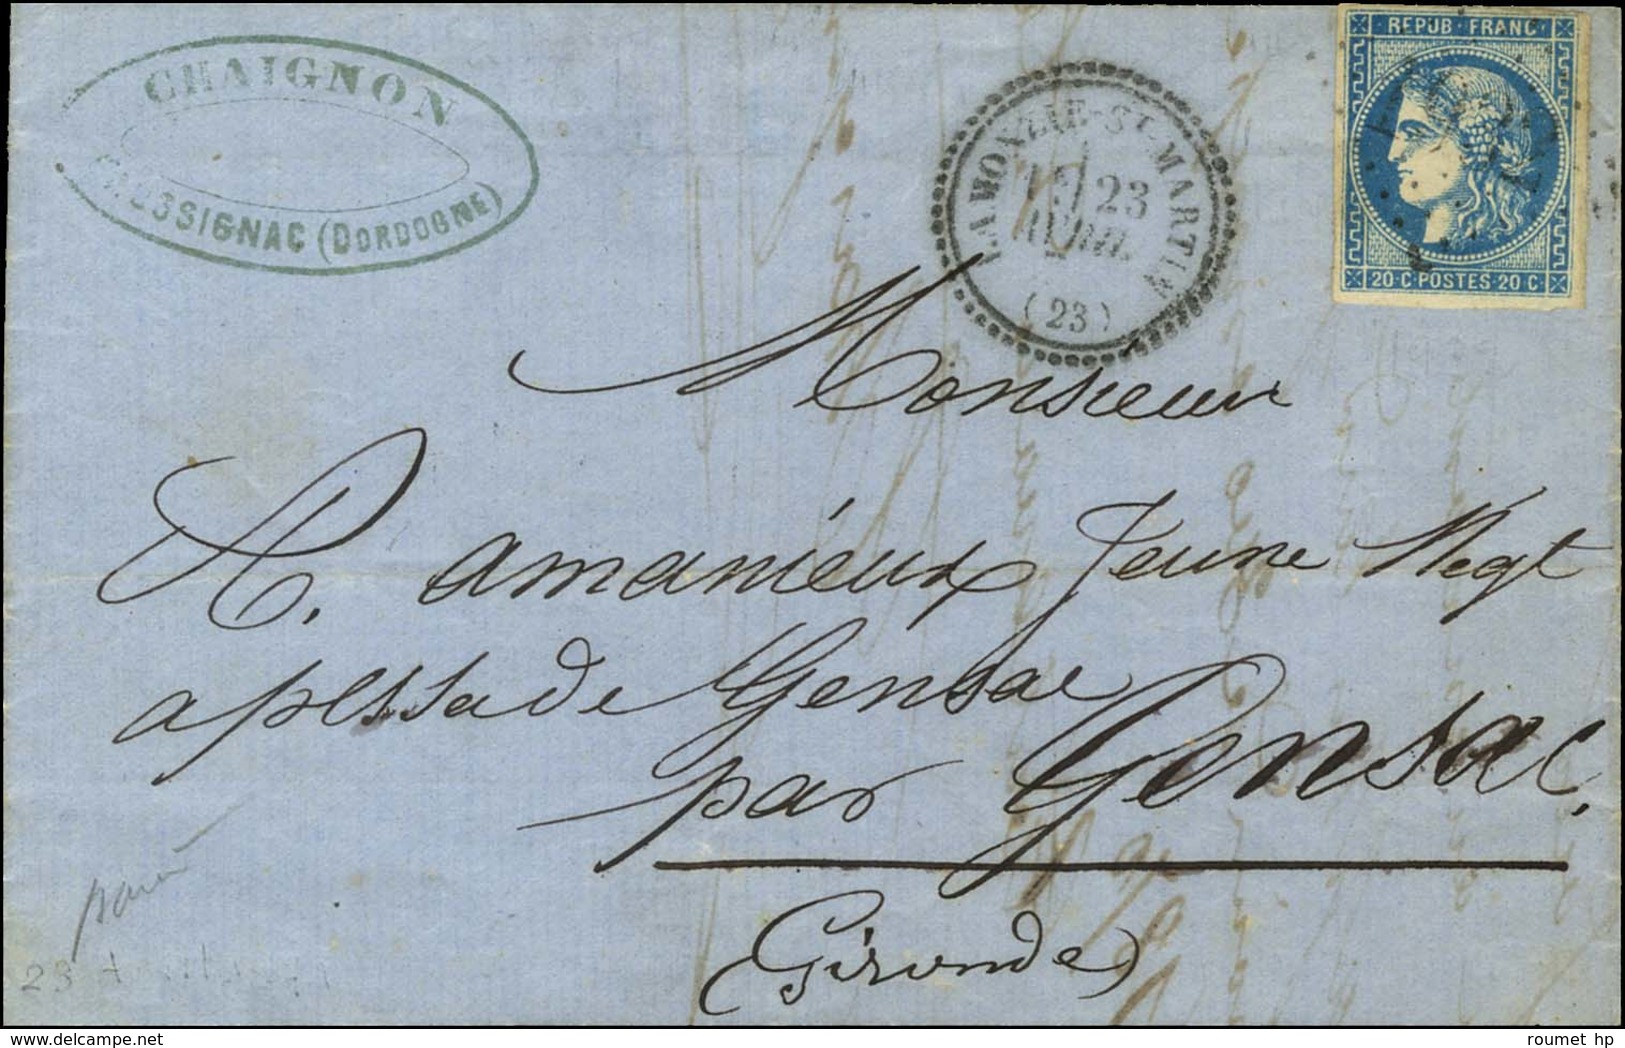 CHAIGNON
SSIGNAC (DORDOGNE)
LAMONZIE-ST-MARTIN
23
AVRIL
(23)
REPUB · FRANC ·
20 · C · POSTES · 20 C ·
Monsieur
R. amanieux Jeune Negt
a pessade Gensac
par Gensac,
(Gironde)
23
roumet hp